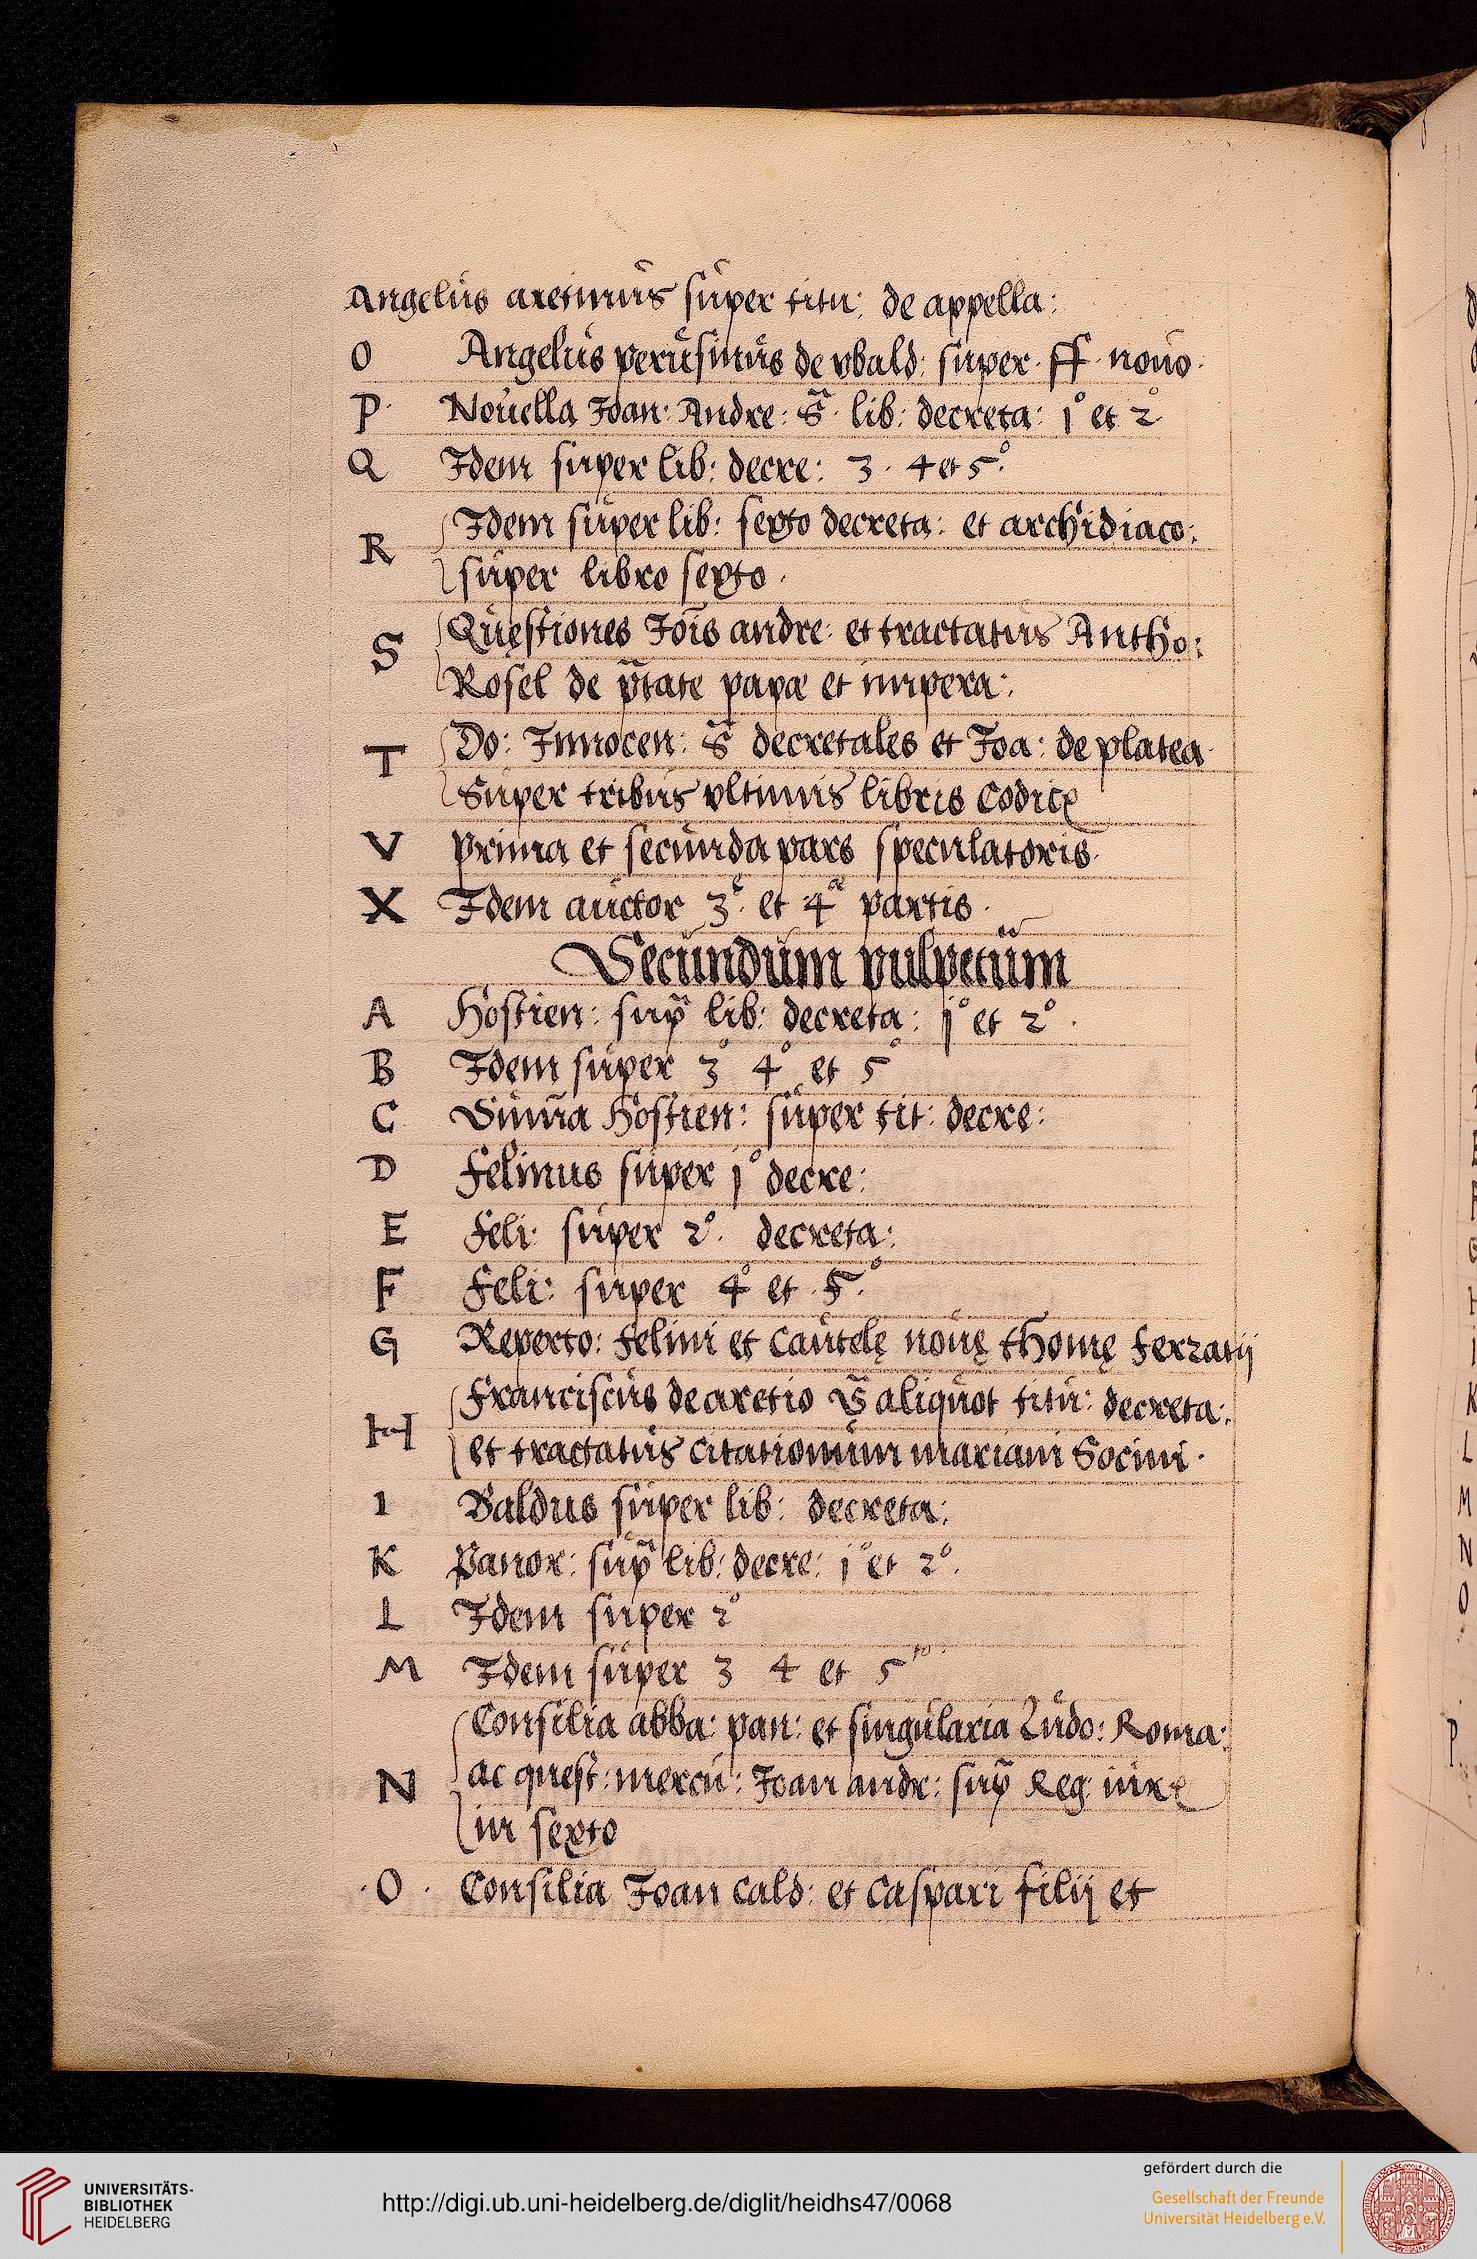 Angelus aretinus super titu: de appella:
O Angelus perusinus de vbald: super ff novo
P Nouella Joan: Andre: S̃ lib: decreta: j° et 2°
Q Idem super lib: decre: 3. 4 et 5°
R Idem super lib: sexto decreta: et archidiaco:
super libro sexto.
S Quęstiones Jois̄ andre: et tractatus Antho:
Rosel de p̃tate papæ et impera:
T Do: Innocen: S̃ decretales et Joa: de platea
Super tribus vltimis libris Codicꝭ
V prima et secunda pars speculatoris.
X Idem auctor 3ę et 4æ partis.
Secundum pulpetum
A Hostien: sup̃ lib: decreta: j° et 2°.
B Idem super 3° 4° et 5°
C Sum̄a Hostien: super tit: decre:
D Felinus super j° decre:
E Feli: super 2°. decreta:
F Feli: super 4° et 5°.
G Reperto: Felini et Cautelę nouę thomę Ferratij
H Franciscus de aretio S̃ aliquot titu: decreta:
et tractatus citationum mariani Socini.
I Baldus super lib: decreta:
K Panor: sup̃ lib: decre: j° et 2°.
L Idem super 2°
M Idem super 3 4 et 5to.
N Consilia abba: pan: et singularia Ludo: Roma:
ac quest: mercu: Joan andr: sup̃ Reg: iurꝭ
in sexto
.O. Consilia Joan Cald: et Caspari filij et
UNIVERSITÄTS-
BIBLIOTHEK
HEIDELBERG
http://digi.ub.uni-heidelberg.de/diglit/heidhs47/0068
gefördert durch die
Gesellschaft der Freunde
Universität Heidelberg e.V.